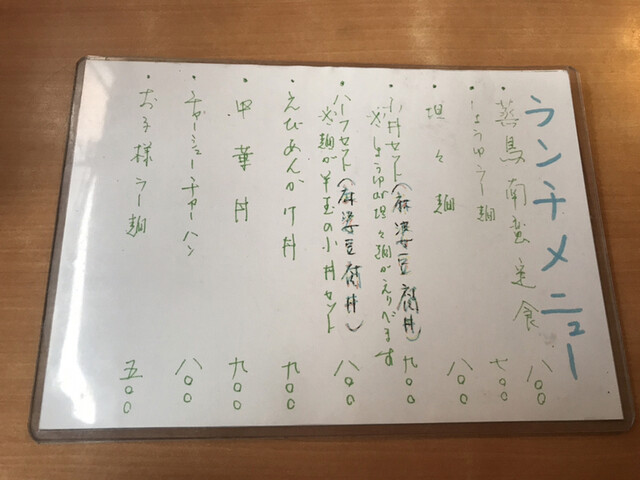 ランチメニュー
・蒸鳥南蛮定食 八〇〇
・しょうゆラー麺 七〇〇
・坦々麺 八〇〇
・小丼セット(麻婆豆腐丼) 九〇〇
※しょうゆか坦々麺がえらべます
・ハーフセット(麻婆豆腐丼) 八〇〇
※麺が半玉の小丼セット
・えびあんかけ丼 九〇〇
・中華丼 九〇〇
・チャーシューチャーハン 八〇〇
・お子様ラー麺 五〇〇